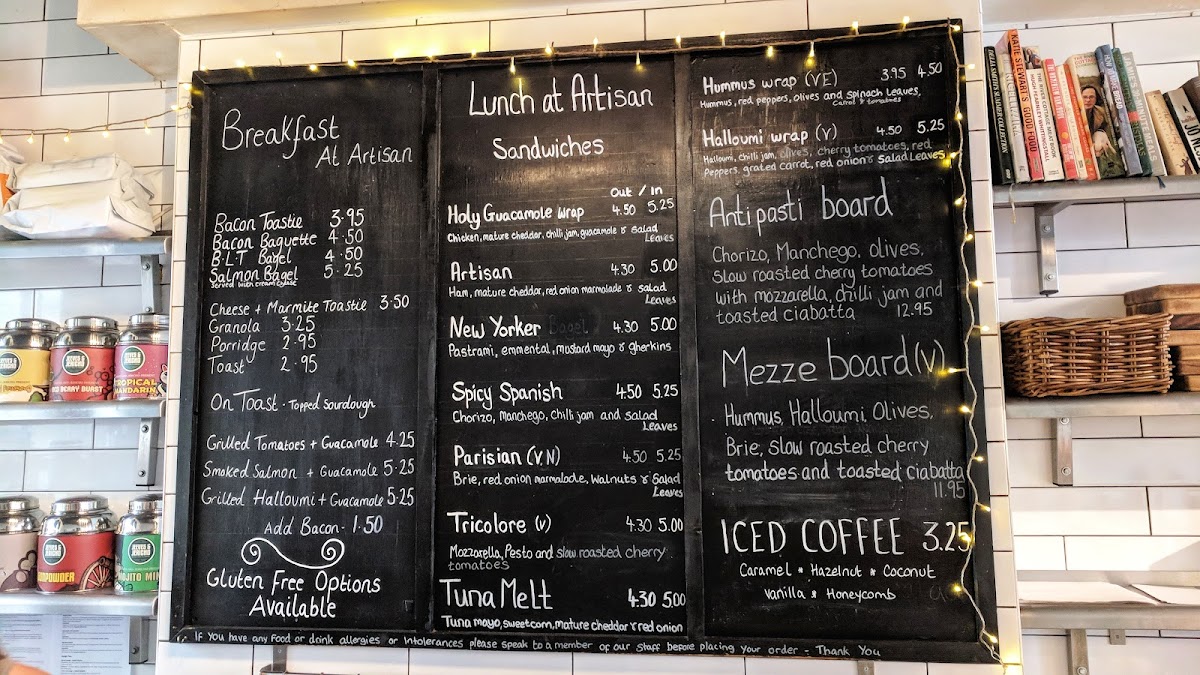 Breakfast
At Artisan
Bacon Toastie 3.95
Bacon Baguette 4.50
B.L.T Bagel 4.50
Salmon Bagel 5.25
Served with cream cheese
Cheese + Marmite Toastie 3.50
Granola 3.25
Porridge 2.95
Toast 2.95
On Toast . Topped Sourdough
Grilled Tomatoes + Guacamole 4.25
Smoked Salmon + Guacamole 5.25
Grilled Halloumi + Guacamole 5.25
Add Bacon - 1.50
Gluten Free Options
Available
Lunch at Artisan
Sandwiches
Out / In
Holy Guacamole Wrap 4.50 5.25
Chicken, mature cheddar, chilli jam, guacamole & salad
Leaves
Artisan 4.30 5.00
Ham, mature cheddar, red onion marmalade & salad
Leaves
New Yorker Bagel 4.30 5.00
Pastrami, emmental, mustard mayo & gherkins
Spicy Spanish 4.50 5.25
Chorizo, Manchego, chilli jam and salad
Leaves
Parisian (V,N) 4.50 5.25
Brie, red onion marmalade, Walnuts & Salad
Leaves
Tricolore (v) 4.30 5.00
Mozzarella, Pesto and slow roasted cherry
tomatoes
Tuna Melt 4.30 5.00
Tuna mayo, sweetcorn, mature cheddar & red onion
Hummus wrap (VE) 3.95 4.50
Hummus, red peppers, olives and spinach leaves,
Carrot & tomatoes
Halloumi wrap (v) 4.50 5.25
Halloumi, chilli jam, olives, cherry tomatoes, red
Peppers, grated carrot, red onion & Salad Leaves
Antipasti board
Chorizo, Manchego, olives,
slow roasted cherry tomatoes
with mozzarella, chilli jam and
toasted ciabatta 12.95
Mezze board (v)
Hummus, Halloumi, Olives,
Brie, slow roasted cherry
tomatoes and toasted ciabatta
11.95
ICED COFFEE 3.25
Caramel * Hazelnut * Coconut
Vanilla & Honeycomb
IF You have any food or drink allergies or Intolerances please speak to a member of our staff before placing your order - Thank You
KATIE STEWART'S GOOD FOOD
RED BERRY BURST
TROPICAL
MANDARIN
GUNPOWDER
MOJITO MINT